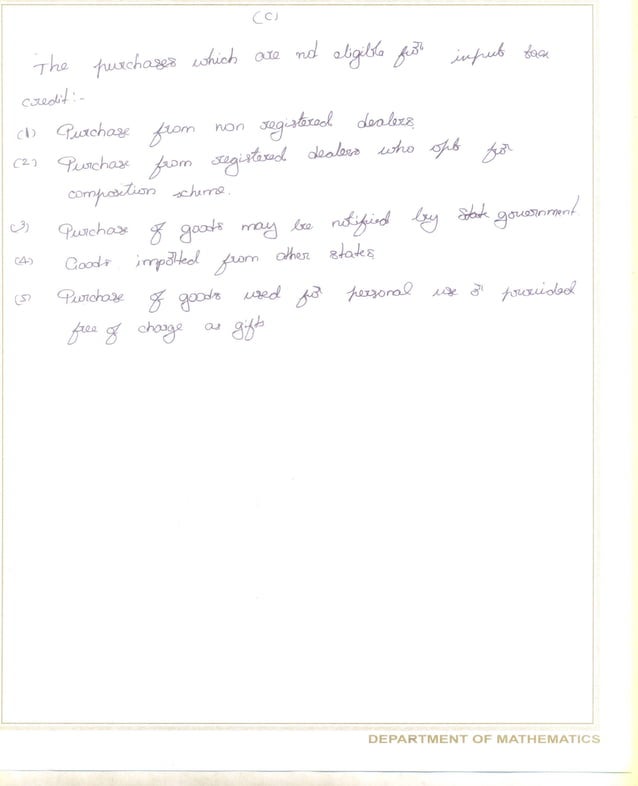 (C)
The purchases which are not eligible for input tax
credit:-
(1) Purchase from non registered dealers.
(2) Purchase from registered dealers who opt for
composition scheme.
(3) Purchase of goods may be notified by state government.
(4) Goods imported from other states
(5) Purchase of goods used for personal use or provided
free of charge as gifts
DEPARTMENT OF MATHEMATICS